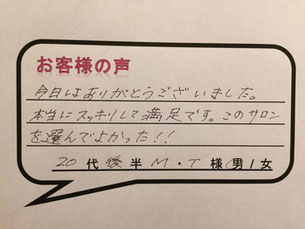 お客様の声
今日はありがとうございました。
本当にスッキリして満足です。このサロン
を選んでよかった!!
20代後半M・T様男/女